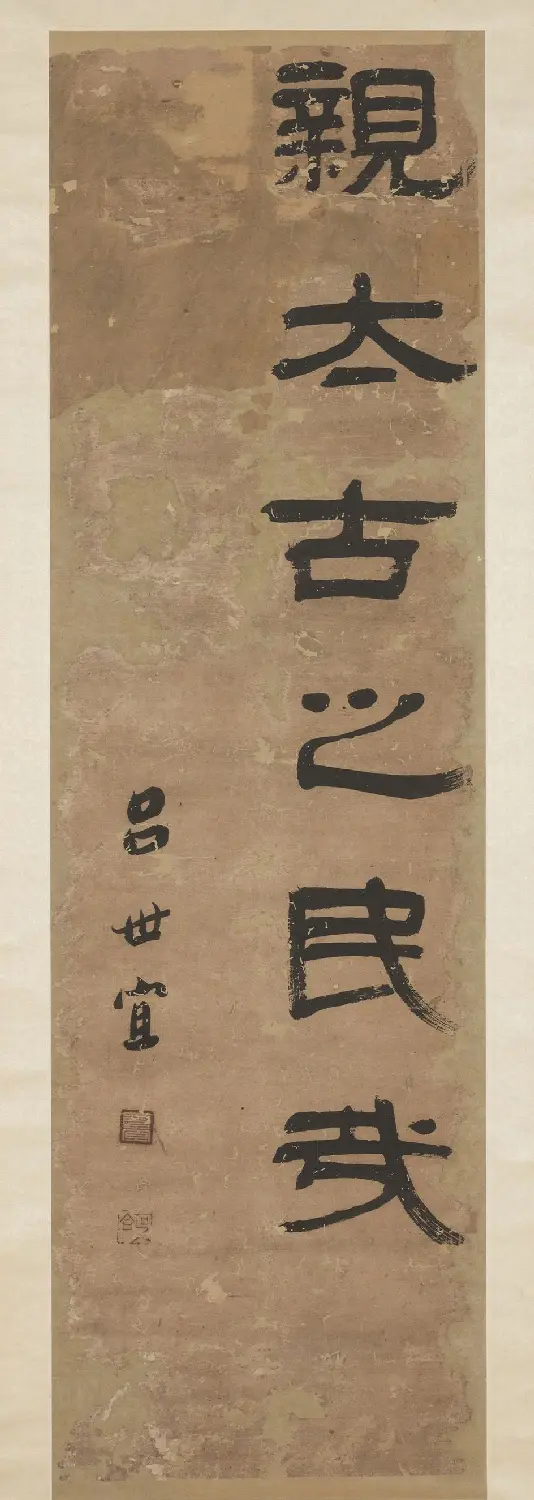 親太古之民哉
呂世宜